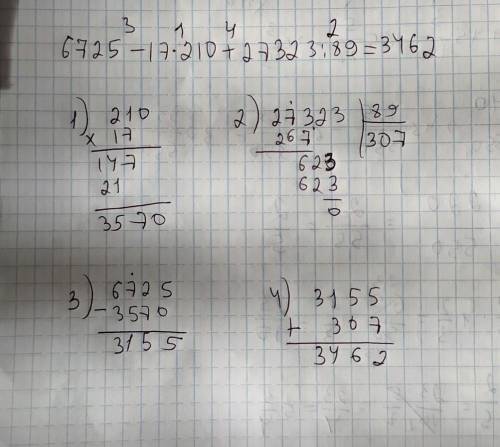 3 1 4 2
6725 - 17·210 + 27323:89 = 3462
1) 210
x 17
147
21
3570
2) 27323 | 89
267 | 307
623
623
0
3) 6725
- 3570
3155
4) 3155
+ 307
3462